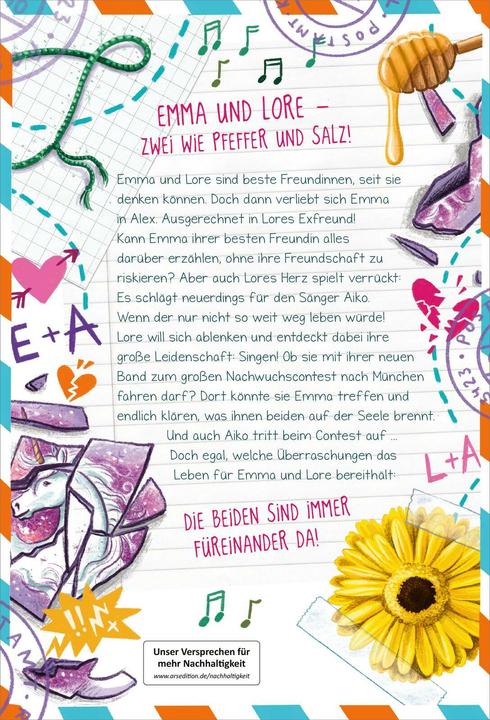 POSTAMT
EMMA UND LORE –
ZWEI WIE PFEFFER UND SALZ!
Emma und Lore sind beste Freundinnen, seit sie
denken können. Doch dann verliebt sich Emma
in Alex. Ausgerechnet in Lores Exfreund!
Kann Emma ihrer besten Freundin alles
darüber erzählen, ohne ihre Freundschaft zu
riskieren? Aber auch Lores Herz spielt verrückt:
Es schlägt neuerdings für den Sänger Aiko.
Wenn der nur nicht so weit weg leben würde!
Lore will sich ablenken und entdeckt dabei ihre
große Leidenschaft: Singen! Ob sie mit ihrer neuen
Band zum großen Nachwuchscontest nach München
fahren darf? Dort könnte sie Emma treffen und
endlich klären, was ihnen beiden auf der Seele brennt.
Und auch Aiko tritt beim Contest auf ...
Doch egal, welche Überraschungen das
Leben für Emma und Lore bereithält:
E+A
L+A
DIE BEIDEN SIND IMMER
FÜREINANDER DA!
Unser Versprechen für
mehr Nachhaltigkeit
www.arsedition.de/nachhaltigkeit